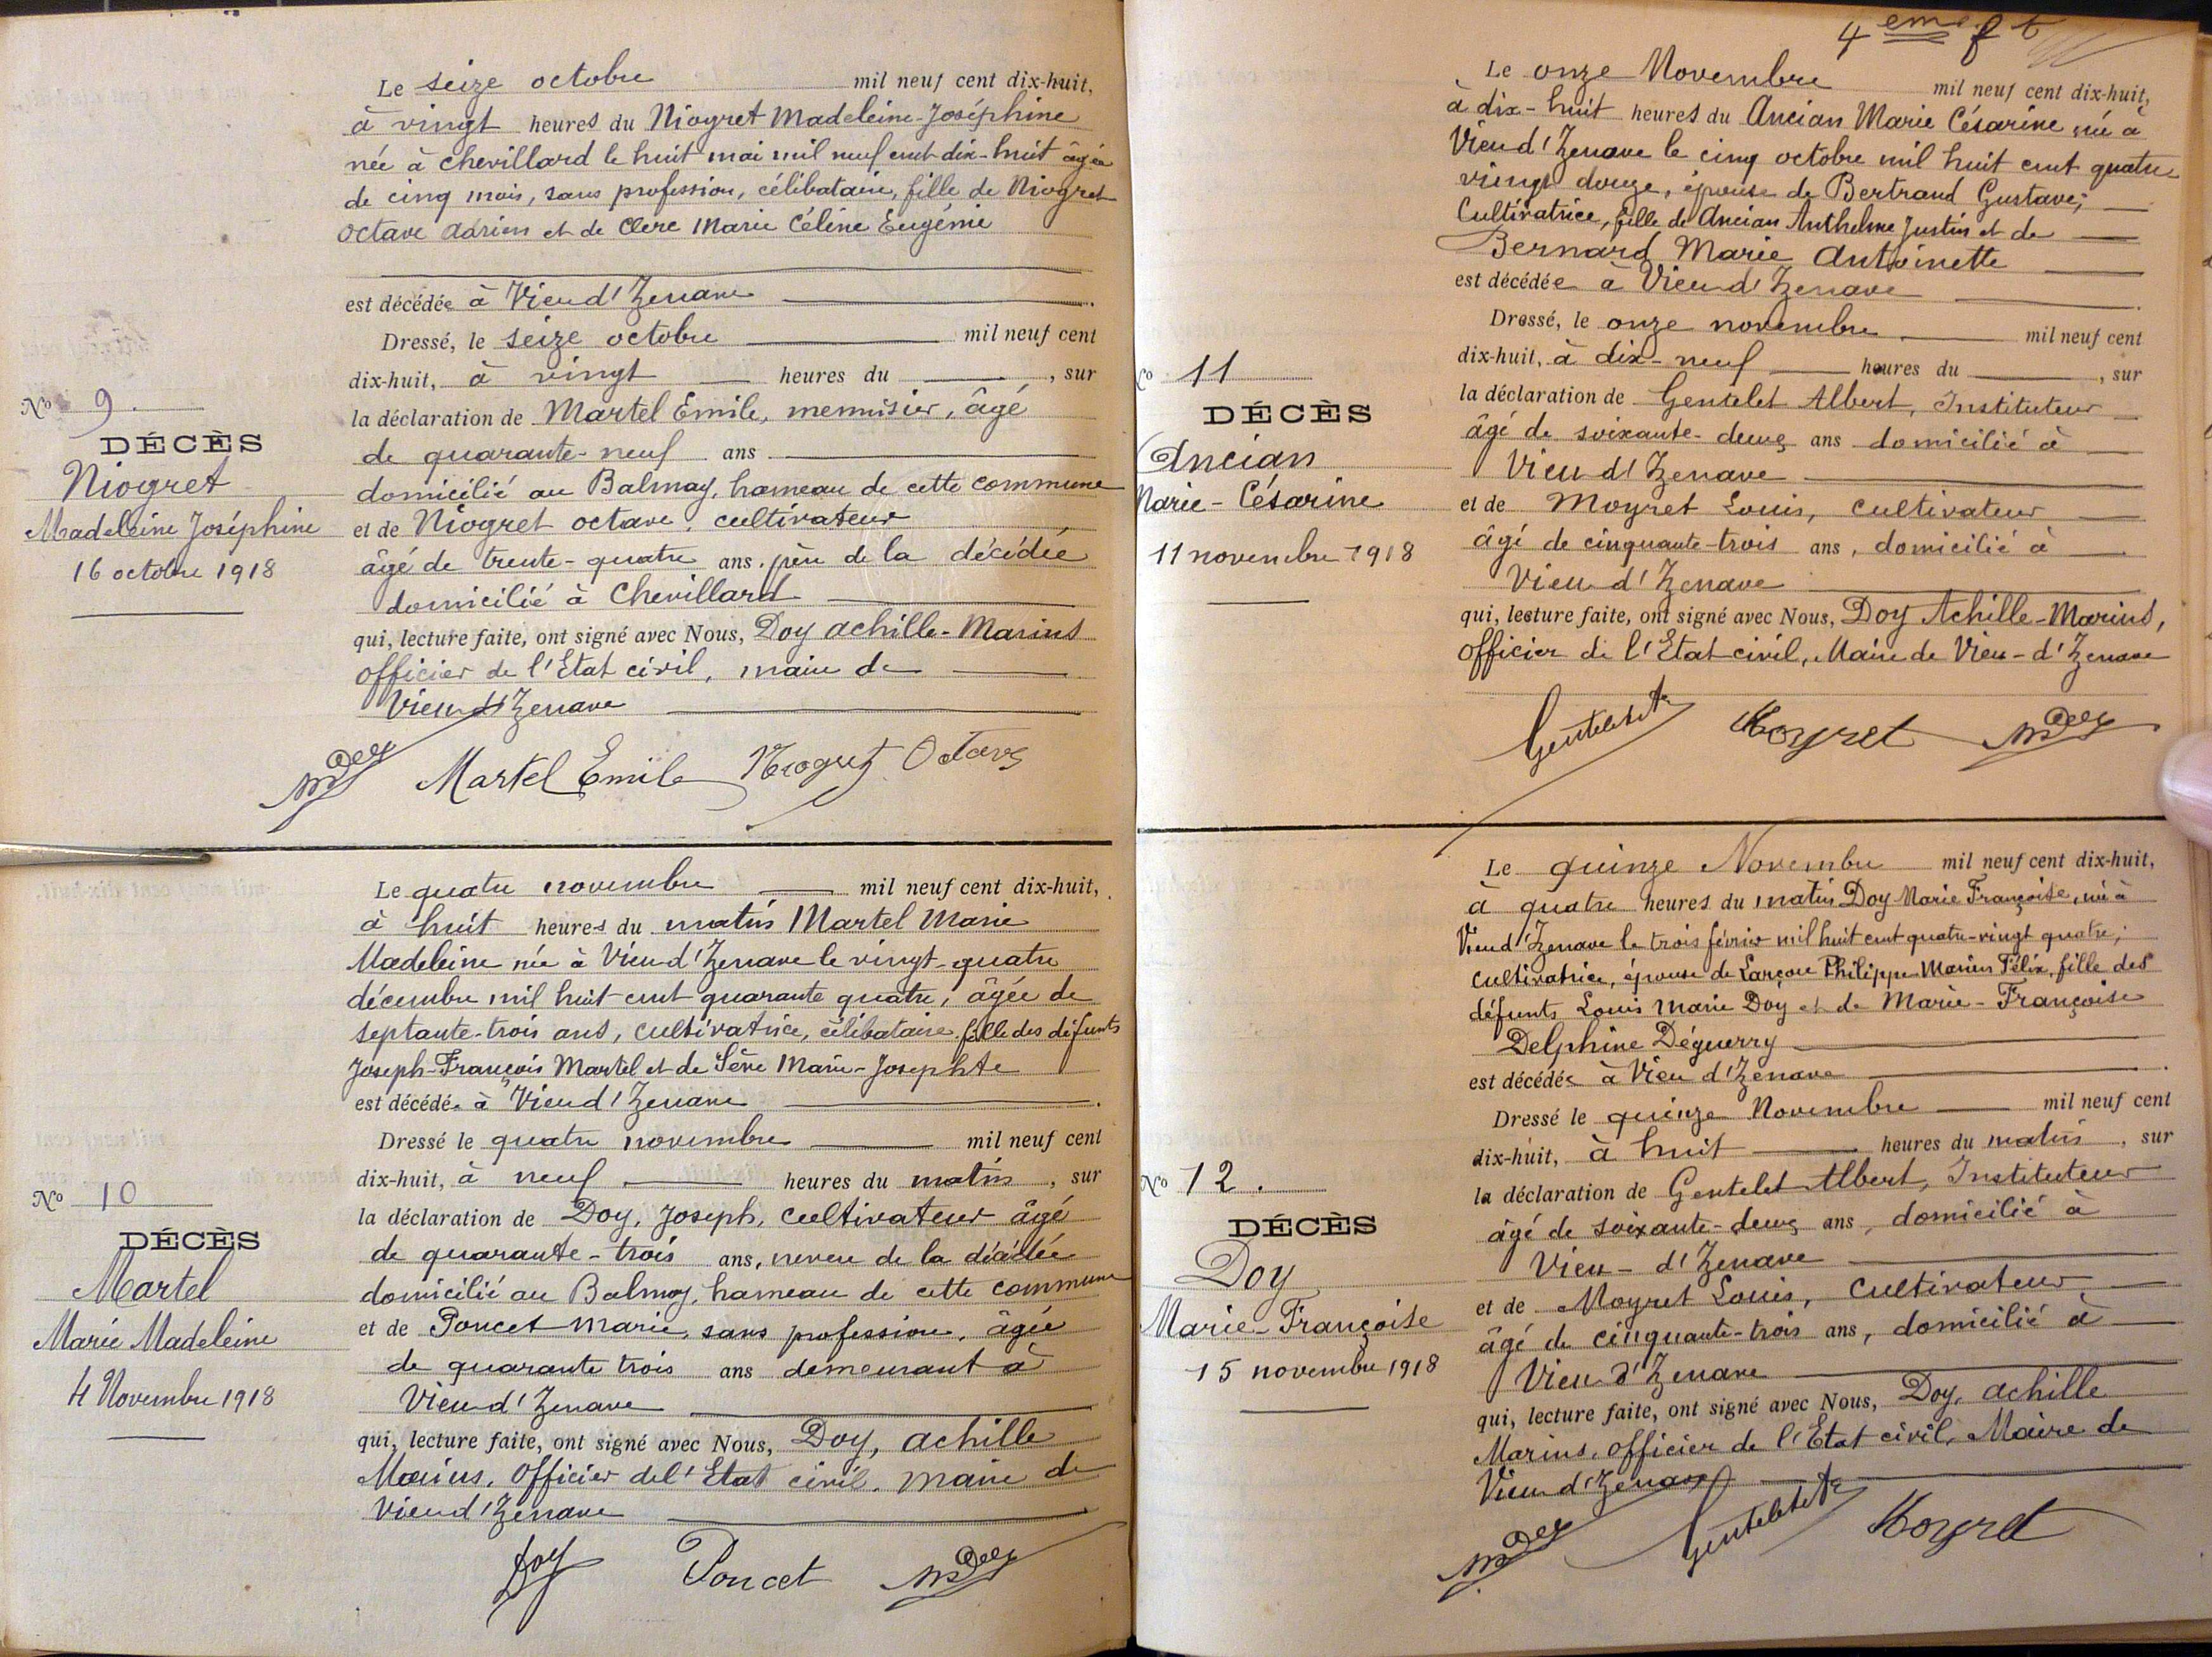 Le seize octobre mil neuf cent dix-huit,
à vingt heures du Niogret Madeleine-Joséphine
née à Chevillard le huit mai mil neuf cent dix-huit âgée
de cinq mois, sans profession, célibataire, fille de Niogret
Octave Adrien et de Clerc Marie Céline Eugénie
est décédée à Vieu d'Izenave
Dressé, le seize octobre mil neuf cent
dix-huit, à vingt heures du , sur
la déclaration de Martel Emile, menuisier, âgé
de quarante-neuf ans
domicilié au Balmay, hameau de cette commune
et de Niogret octave, cultivateur
âgé de trente-quatre ans, père de la décédée
domicilié à Chevillard
qui, lecture faite, ont signé avec Nous, Doy Achille-Marius
officier de l'Etat civil, maire de
Vieu d'Izenave
Martel Emile Niogret Octave
No 9.
DÉCÈS
Niogret
Madeleine Joséphine
16 octobre 1918
Le quatre novembre mil neuf cent dix-huit,
à huit heures du matin Martel Marie
Madeleine née à Vieu d'Izenave le vingt-quatre
décembre mil huit cent quarante quatre, âgée de
septante-trois ans, cultivatrice, célibataire, fille des défunts
Joseph-François Martel et de Sève Marie-Josephte
est décédée à Vieu d'Izenave
Dressé le quatre novembre mil neuf cent
dix-huit, à neuf heures du matin, sur
la déclaration de Doy, Joseph, cultivateur âgé
de quarante-trois ans, neveu de la décédée
domicilié au Balmay, hameau de cette commune
et de Poncet Marie, sans profession, âgée
de quarante trois ans demeurant à
Vieu d'Izenave
qui, lecture faite, ont signé avec Nous, Doy, Achille
Marius, Officier de l'Etat civil, Maire de
Vieu d'Izenave
Doy Poncet
No 10
DÉCÈS
Martel
Marie Madeleine
4 Novembre 1918
4eme ft
Le onze Novembre mil neuf cent dix-huit,
à dix-huit heures du Ancian Marie Césarine née à
Vieu d'Izenave le cinq octobre mil huit cent quatre
vingt douze, épouse de Bertrand Gustave,
Cultivatrice, fille de Ancian Anthelme Justin et de
Bernard Marie Antoinette
est décédée à Vieu d'Izenave
Dressé, le onze novembre mil neuf cent
dix-huit, à dix-neuf heures du , sur
la déclaration de Gentelet Albert, Instituteur
âgé de soixante-deux ans domicilié à
Vieu d'Izenave
et de Moyret Louis, cultivateur
âgé de cinquante-trois ans, domicilié à
Vieu d'Izenave
qui, lecture faite, ont signé avec Nous, Doy Achille-Marius,
officier de l'Etat civil, Maire de Vieu-d'Izenave
Gentelet A Moyret
No 11
DÉCÈS
Ancian
Marie-Césarine
11 novembre 1918
Le quinze Novembre mil neuf cent dix-huit,
à quatre heures du matin Doy Marie Françoise, née à
Vieu d'Izenave le trois février mil huit cent quatre-vingt quatre,
cultivatrice, épouse de Larçon Philippe Marius Félix, fille des
défunts Louis Marie Doy et de Marie-Françoise
Delphine Déguerry
est décédée à Vieu d'Izenave
Dressé le quinze Novembre mil neuf cent
dix-huit, à huit heures du matin, sur
la déclaration de Gentelet Albert, Instituteur
âgé de soixante-deux ans, domicilié à
Vieu-d'Izenave
et de Moyret Louis, cultivateur
âgé de cinquante-trois ans, domicilié à
Vieu d'Izenave
qui, lecture faite, ont signé avec Nous, Doy, Achille
Marius, officier de l'Etat civil, Maire de
Vieu d'Izenave
Gentelet A Moyret
No 12.
DÉCÈS
Doy
Marie-Françoise
15 novembre 1918